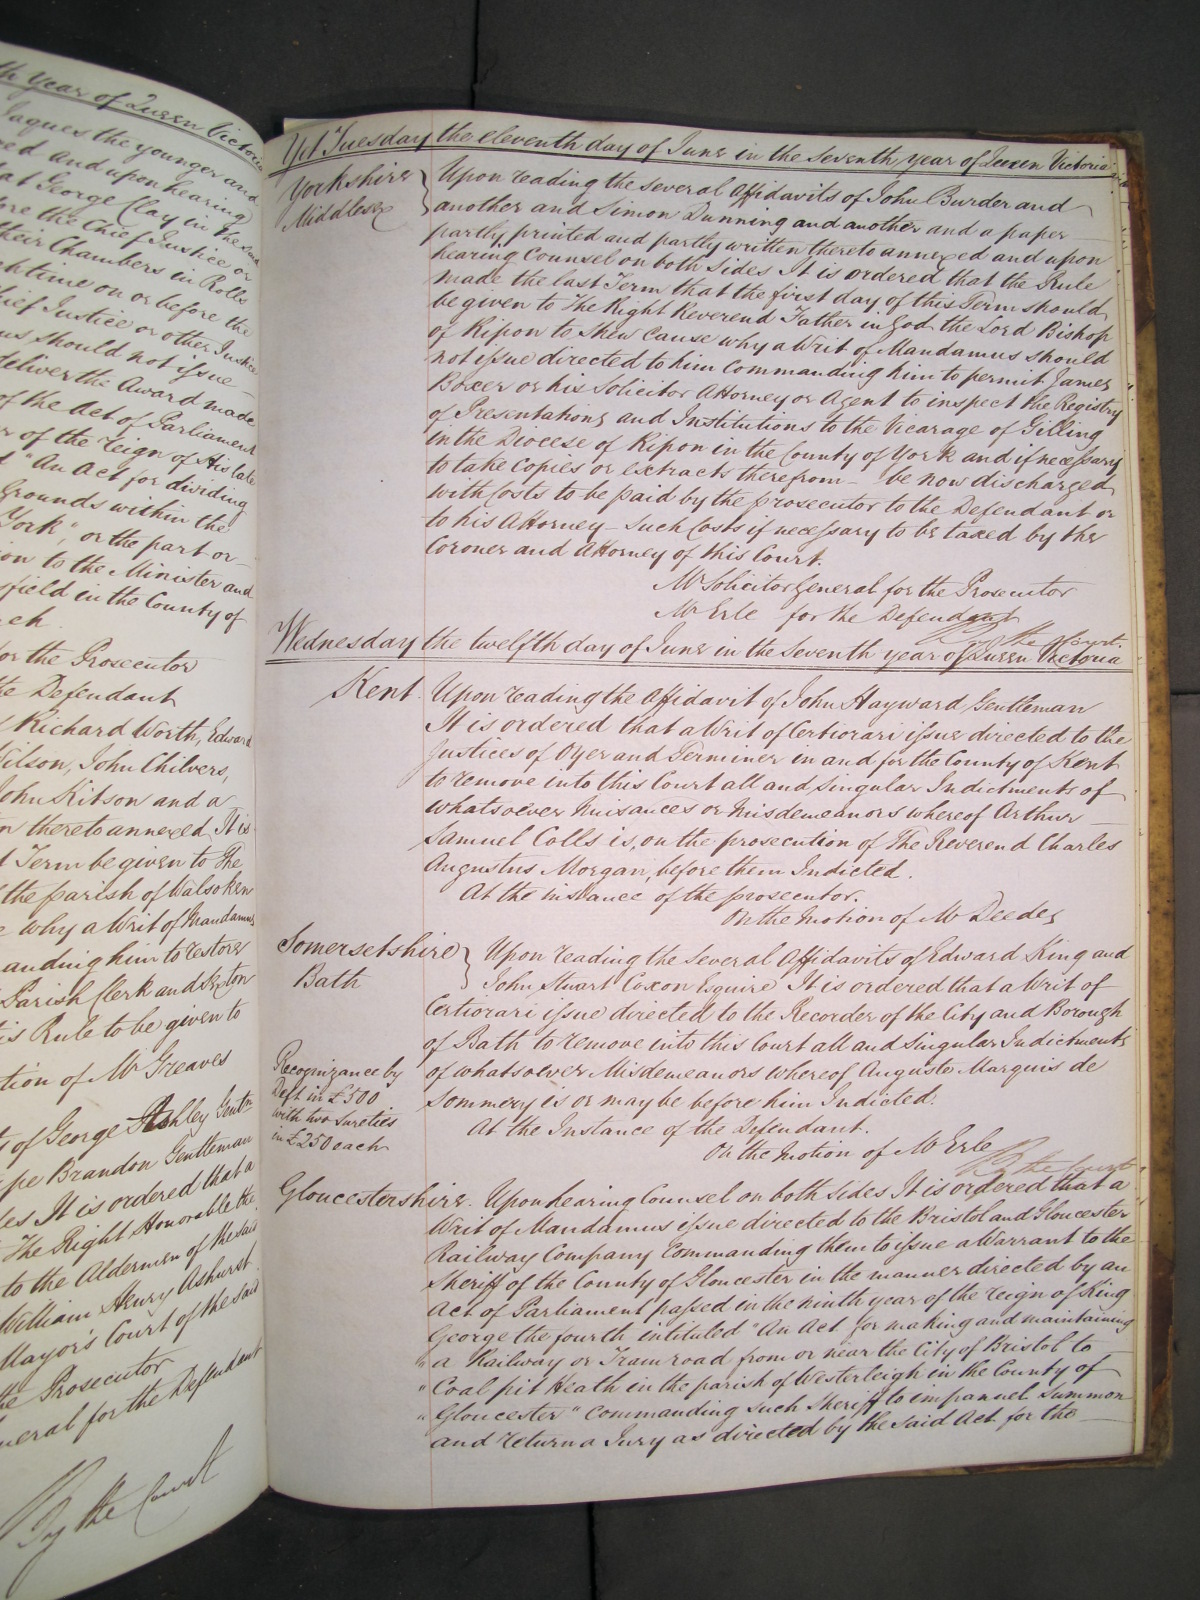 th Year of Queen Victoria
Jaques the younger and
red and upon hearing
at George Clay in the said
ore the Chief Justice or
their Chambers in Rolls
ch time on or before the
hief Justice or other Justice
us should not issue
deliver the Award made
of the Act of Parliament
r of the reign of His late
d "An Act for dividing
Grounds within the
York", or the part or
ion to the Minister and
sfield in the County of
ch.
or the Prosecutor
the Defendant
Richard Worth, Edward
Wilson, John Chilvers,
John Kitson and a
n thereto annexed It is
t Term be given to The
the parish of Walsoken
e why a Writ of Mandamus
anding him to restore
Parish Clerk and Sexton
is Rule to be given to
tion of Mr Greaves
of George Ashley Gentn
pe Brandon Gentleman
es It is ordered that a
The Right Honorable the
to the Aldermen of the said
William Henry Ashurst
Mayor's Court of the said
the Prosecutor
neral for the Defendant
By the Court
Yet Tuesday the eleventh day of June in the seventh year of Queen Victoria
Yorkshire
Middlesex
Upon reading the several Affidavits of John Burder and
another and Simon Dunning and another and a paper
partly printed and partly written thereto annexed and upon
hearing Counsel on both sides It is ordered that the Rule
made the last Term that the first day of this Term should
be given to The Right Reverend Father in God the Lord Bishop
of Ripon to shew cause why a Writ of Mandamus should
not issue directed to him Commanding him to permit James
Boxer or his Solicitor Attorney or Agent to inspect the Registry
of Presentations and Institutions to the Vicarage of Gilling
in the Diocese of Ripon in the County of York and if necessary
to take copies or extracts therefrom be now discharged
with Costs to be paid by the prosecutor to the Defendant or
to his Attorney – such Costs if necessary to be taxed by the
Coroner and Attorney of this Court.
Mr Solicitor General for the Prosecutor
Mr Erle for the Defendant
By the Court.
Wednesday the twelfth day of June in the seventh year of Queen Victoria
Kent
Upon reading the Affidavit of John Hayward Gentleman
It is ordered that a Writ of Certiorari issue directed to the
Justices of Oyer and Terminer in and for the County of Kent
to remove into this Court all and singular Indictments of
whatsoever Nuisances or Misdemeanors whereof Arthur
Samuel Colls is, on the prosecution of The Reverend Charles
Augustus Morgan, before them Indicted.
At the instance of the prosecutor.
On the motion of Mr Deedes
Somersetshire
Bath
Upon reading the several Affidavits of Edward King and
John Stuart Coxon Esquire It is ordered that a Writ of
Certiorari issue directed to the Recorder of the City and Borough
of Bath to remove into this Court all and singular Indictments
of whatsoever Misdemeanors whereof Auguste Marquis de
Sommery is or may be before him Indicted.
At the Instance of the Defendant.
On the motion of Mr Erle
By the Court
Recognizance by
Deft in £500
with two sureties
in £250 each
Gloucestershire. Upon hearing Counsel on both sides It is ordered that a
Writ of Mandamus issue directed to the Bristol and Gloucester
Railway Company Commanding them to issue a Warrant to the
Sheriff of the County of Gloucester in the manner directed by an
Act of Parliament passed in the ninth year of the reign of King
George the fourth intituled "An Act for making and maintaining
" a Railway or Tramroad from or near the City of Bristol to
" Coal pit Heath in the parish of Westerleigh in the County of
" Gloucester" Commanding such Sheriff to impanuel summon
and return a Jury as directed by the said Act for the